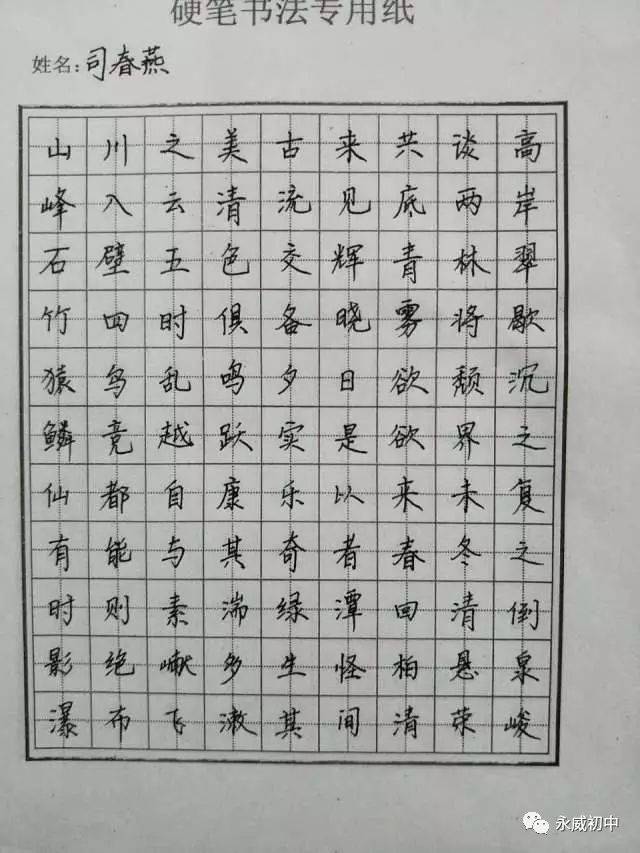 硬笔书法专用纸
姓名:司春燕
山川之美古来共谈高
峰入云清流见底两岸
石壁五色交辉青林翠
竹四时俱备晓雾将歇
猿鸟乱鸣夕日欲颓沉
鳞竞越跃实是欲界之
仙都自康乐以来未复
有能与其奇者春冬之
时则素湍绿潭回清倒
影绝巘多生怪柏悬泉
瀑布飞漱其间清荣峻
永威初中